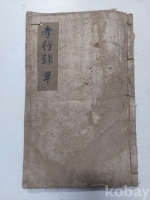 孝行錄 單
kobay